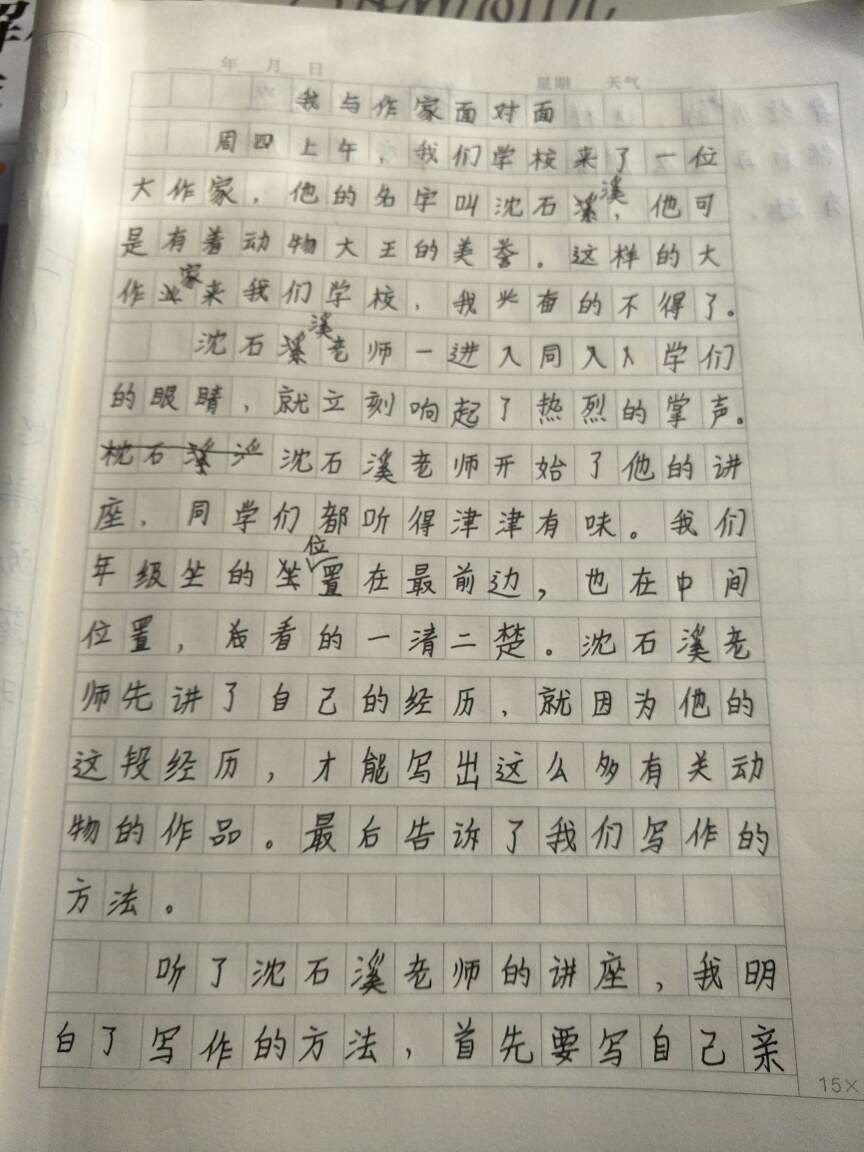 年 月 日 星期 天气
我与作家面对面
周四上午，我们学校来了一位
大作家，他的名字叫沈石溪，他可
是有着动物大王的美誉。这样的大
作家来我们学校，我兴奋的不得了。
沈石溪老师一进入同入人学们
的眼睛，就立刻响起了热烈的掌声。
沈石溪老师开始了他的讲
座，同学们都听得津津有味。我们
年级坐的坐位置在最前边，也在中间
位置，看的一清二楚。沈石溪老
师先讲了自己的经历，就因为他的
这段经历，才能写出这么多有关动
物的作品。最后告诉了我们写作的
方法。
听了沈石溪老师的讲座，我明
白了写作的方法，首先要写自己亲
15×